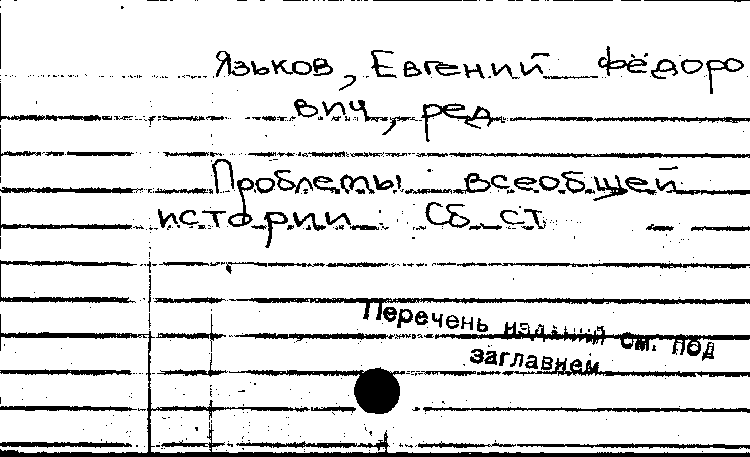 Язьков, Евгений Фёдоро
вич, ред
Проблемы всеобщей
истории: Сб. ст
Перечень изданий см. под
заглавием